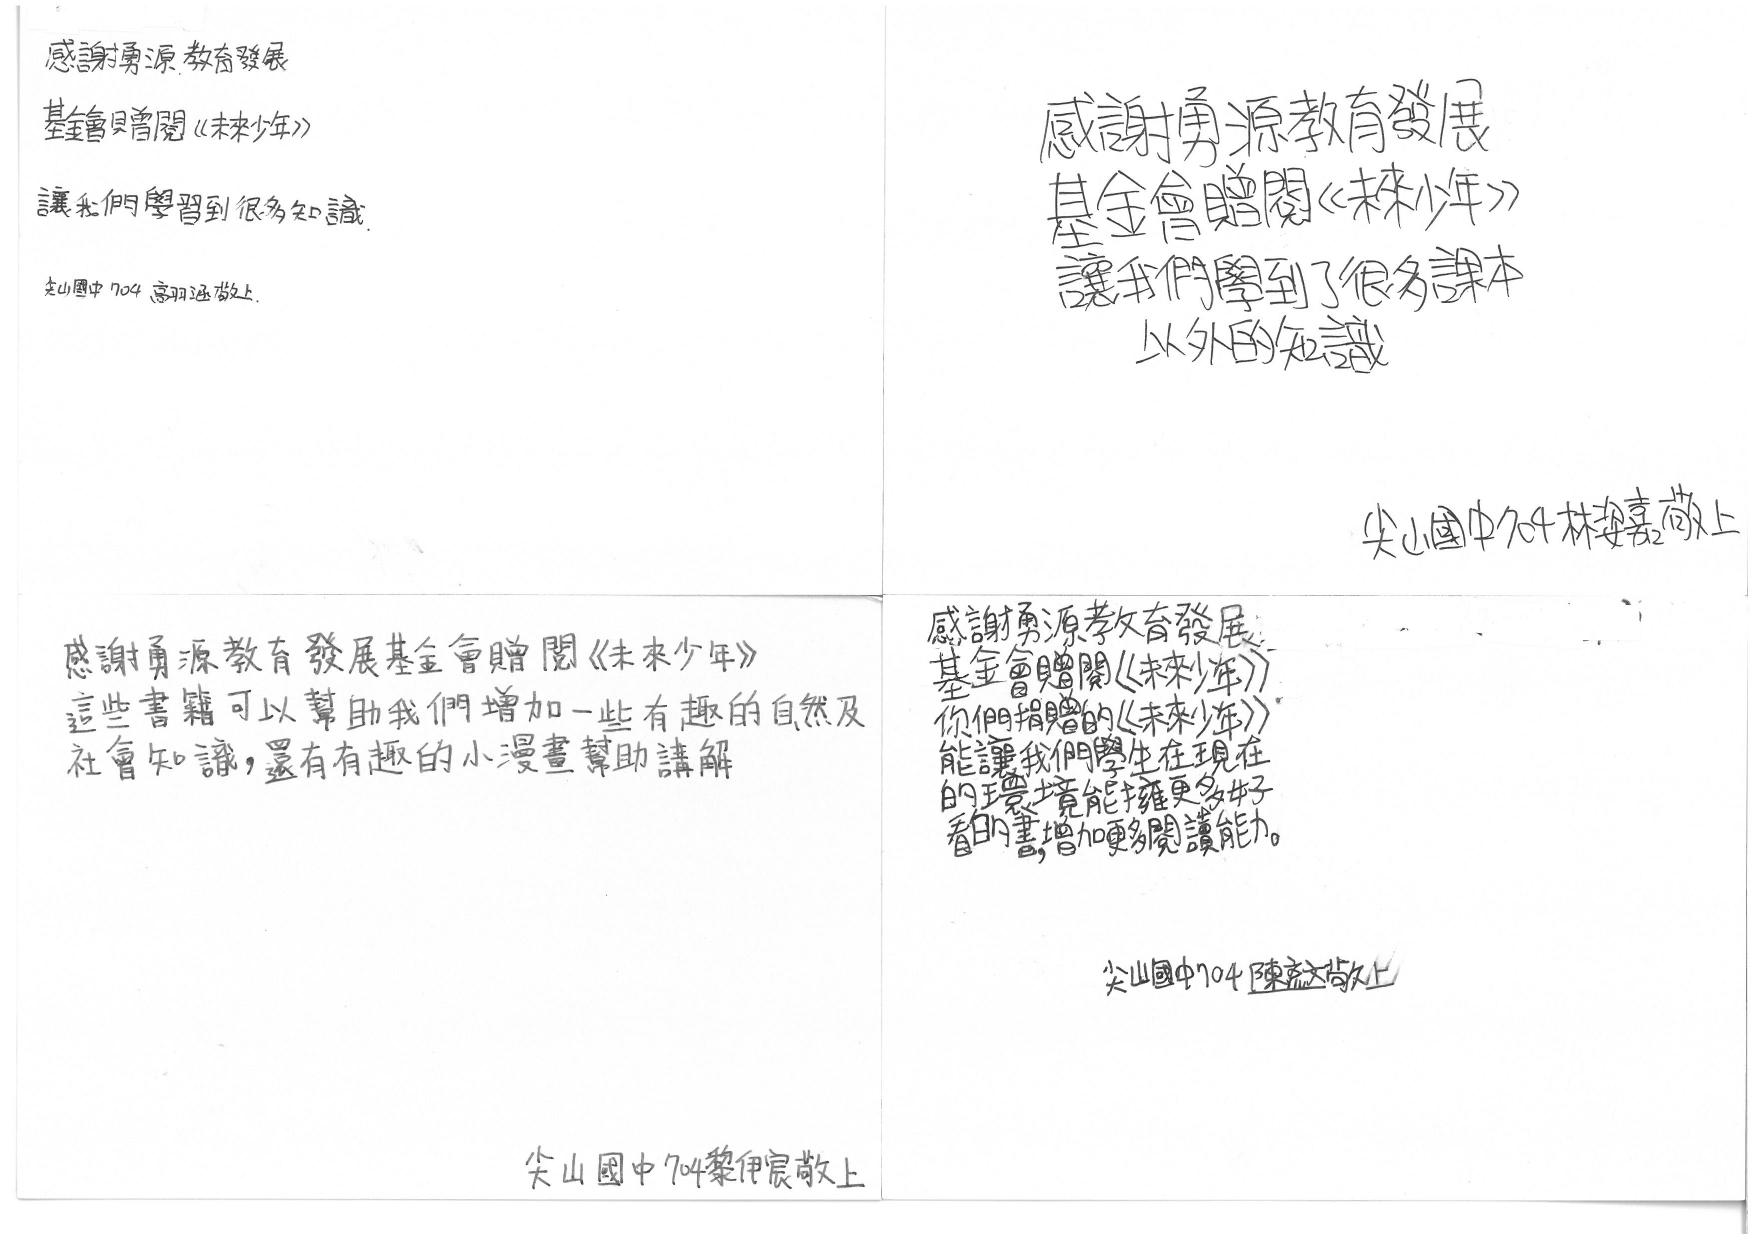 感謝勇源教育發展
基金會贈閱《未來少年》
讓我們學習到很多知識.
尖山國中704 高羽涵敬上.
感謝勇源教育發展
基金會贈閱《未來少年》
讓我們學到了很多課本
以外的知識
尖山國中704林姿嘉敬上
感謝勇源教育發展基金會贈閱《未來少年》
這些書籍可以幫助我們增加一些有趣的自然及
社會知識，還有有趣的小漫畫幫助講解
尖山國中704黎伊宸敬上
感謝勇源教育發展
基金會贈閱《未來少年》
你們捐贈的《未來少年》
能讓我們學生在現在
的環境能擁更多好
看的書，增加更多閱讀能力。
尖山國中704陳亮文敬上